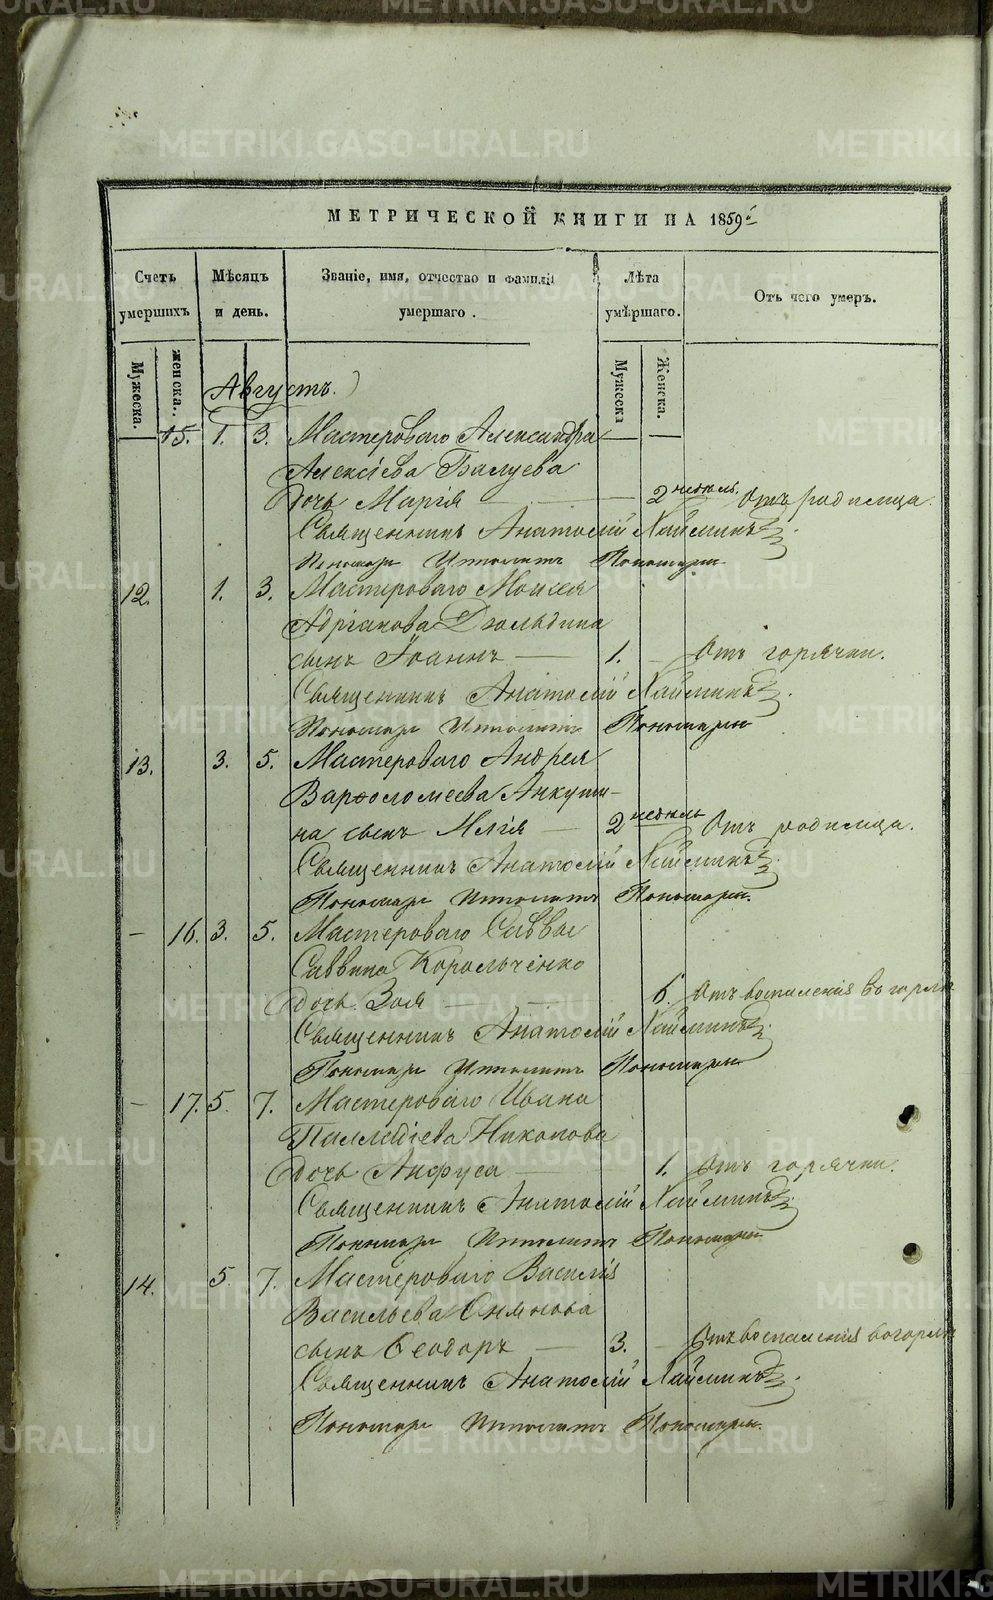 МЕТРИЧЕСКОЙ КНИГИ НА 1859й
Счетъ умершихъ
Мѣсяцъ и день.
Званіе, имя, отчество и фамилія умершаго.
Лѣта умершаго.
Отъ чего умеръ.
Мужеска.
женска.
Мужеска
Женска.
Августъ.
15. 1. 3. Мастероваго Александра
Алексіева Балуева
дочь Марія 2 недѣль. Отъ родимца.
Священникъ Анатолій
Пономарь Ипполитъ Пономаревъ
12. 1. 3. Мастероваго Моисея
Адріанова Дюльдина
сынъ Іоаннъ 1. Отъ горячки.
Священникъ Анатолій
Пономарь Ипполитъ Пономаревъ
13. 3. 5. Мастероваго Андрея
Варфоломеева Анкуди-
на сынъ Илія 2 недѣль Отъ родимца.
Священникъ Анатолій
Пономарь Ипполитъ Пономаревъ.
16. 3. 5. Мастероваго Саввы
Саввина Корольченко
дочь Зоя 6. Отъ воспаленія въ горлѣ
Священникъ Анатолій
Пономарь Ипполитъ Пономаревъ
17. 5. 7. Мастероваго Ивана
Палладіева Никонова
дочь Анфуса 1. Отъ горячки.
Священникъ Анатолій
Пономарь Ипполитъ Пономаревъ
14. 5. 7. Мастероваго Василія
Васильева
сынъ Ѳеодоръ 3. Отъ воспаленія въ горлѣ
Священникъ Анатолій
Пономарь Ипполитъ Пономаревъ.
METRIKI.GASO-URAL.RU